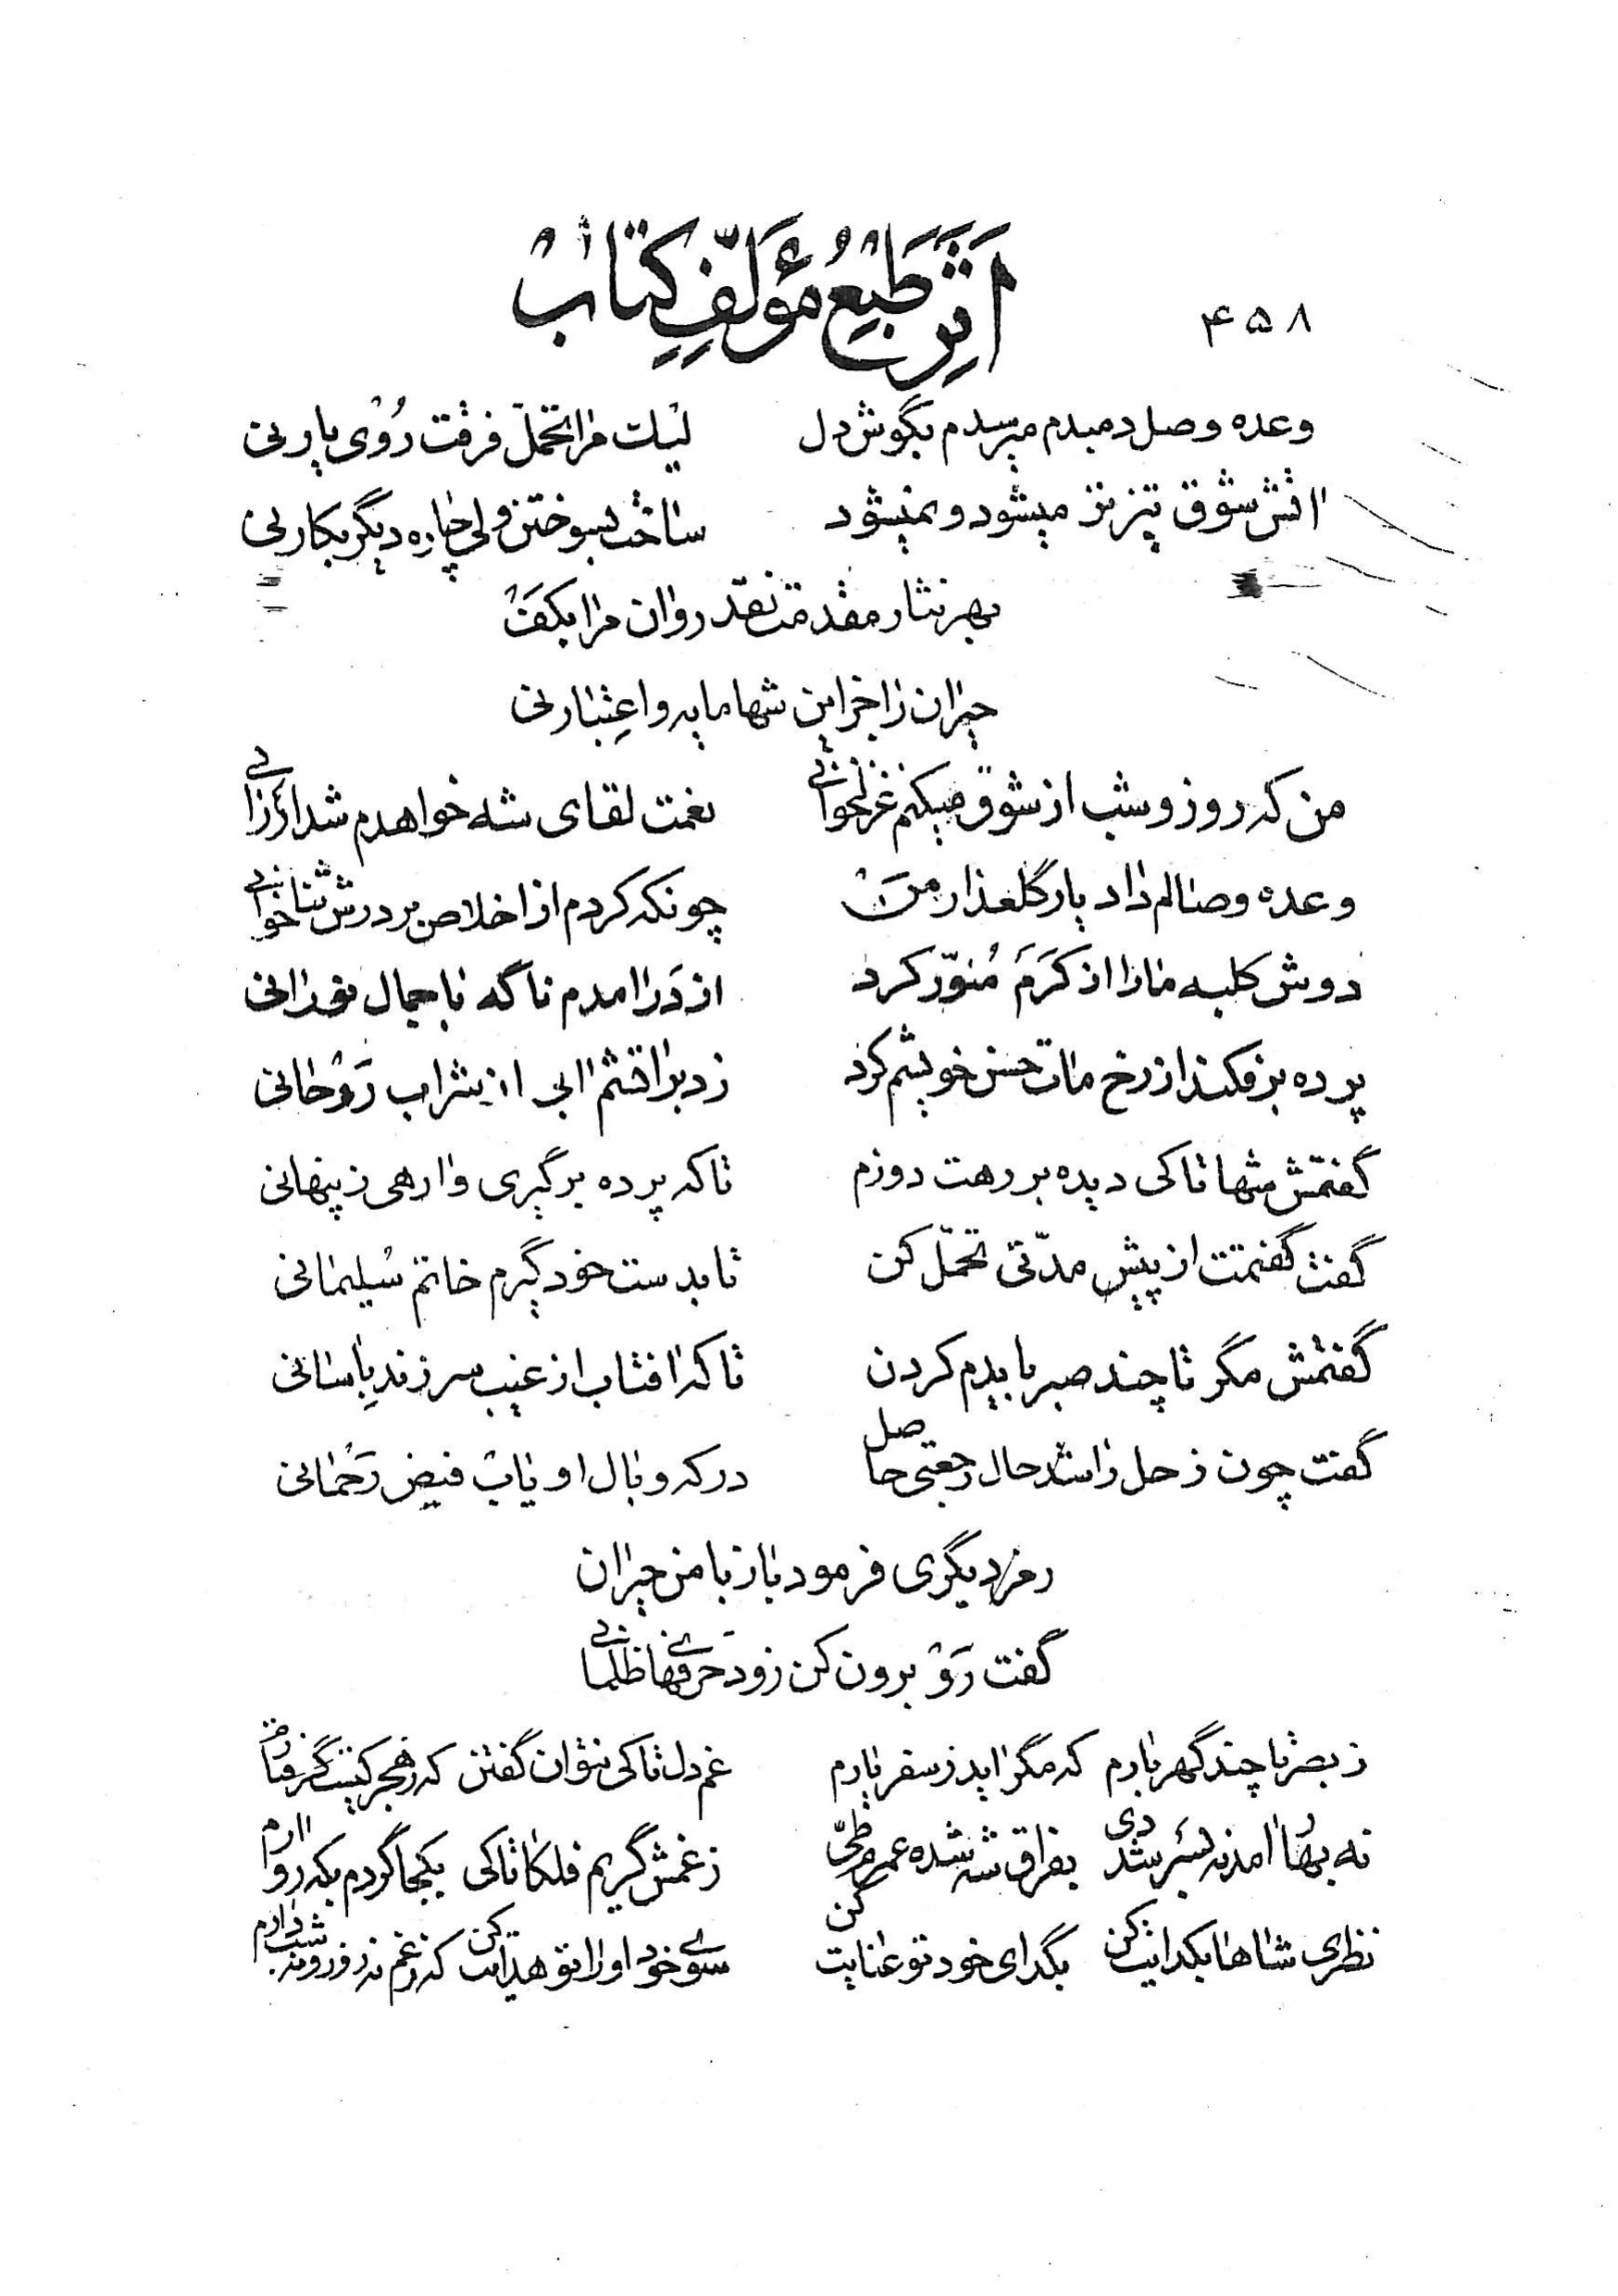 ۴۵۸
اَثَرِ طَبْعِ مُؤَلِّفِ کِتابْ
وعده وصل دمبدم میرسدم بگوش دل لیک مرا تحمّل فرقت رُوْی یار نی
اتش شوق تیزتر میشود و نمیشود ساخت بسوختن ولی چاره دیگر بکار نی
بهر نثار مقدمت نقد روان مرا بکَفْ
حیران را جز این شها مایه و اعِتبار نی
من که روز و شب از شوق میکنم غزلخوانی نعمت لقای شه خواهدم شد ارزانی
وعده وصالم داد یار گلعذار مَنْ چونکه کردم از اخلاص بر درش ثناخوانی
دوش کلبه ما را از کَرَمْ مُنوّر کرد از دَر امدم ناگه با جمال نورانی
پرده برفکند از رخ مات حسن خویشم کرد زد بر اتشم ابی از شراب رَوْحانی
گفتمش شها تا کی دیده بر رهت دوزم تا که پرده برگیری وارهی ز پنهانی
گفت گفتمت از پیش مدّتی تحمّل کن تا بدست خود گیرم خاتم سُلیمانی
گفتمش مگر تا چند صبر بایدم کردن تا که افتاب از غیب سر زند بِاسانی
گفت چون زحل را شد حال رجعتی حاصل در که وبال او یابْ فیض رَحْمانی
رمز دیگری فرمود باز با من حیران
گفت رَوْ برون کن زود حَرفهای ظلمانی
ز بصر تا چند گهر بارم که مگر اید ز سفر یارم غم دل تا کی نتوان گفتن که ز هجر کیست گرفتارم
نه بهار امد نه بسَر شد دی بفراق شه شده عمرم طیّ ز غمش گریم فلکا تا کی بکجا گردم بکه رو ارم
نظری شاها بگدایت کن بگدای خود تو عنایت کن سوی خود او را تو هدایت کن که ز غم نه روز و نه شب دارم